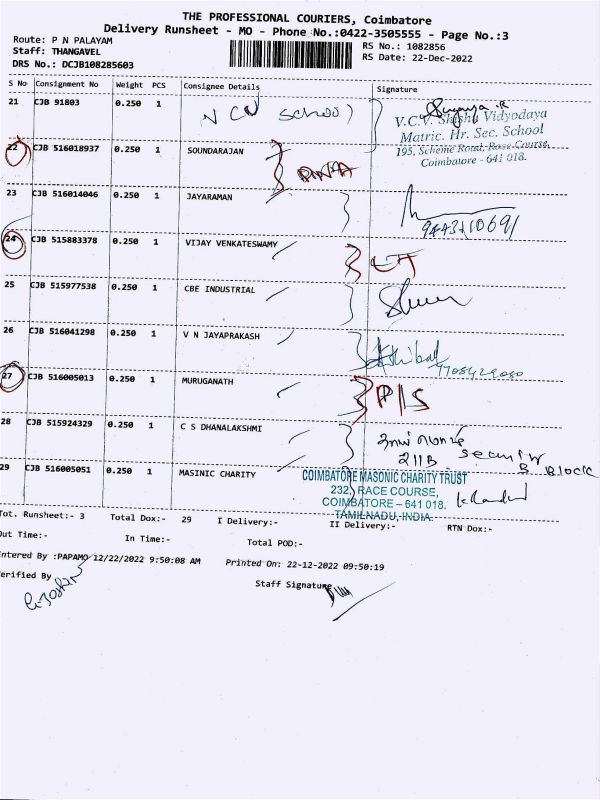 THE PROFESSIONAL COURIERS, Coimbatore
Delivery Runsheet - MO - Phone No.:0422-3505555 - Page No.:3
Route: P N PALAYAM
Staff: THANGAVEL
DRS No.: DCJB108285603
RS No.: 1082856
RS Date: 22-Dec-2022
S No Consignment No Weight PCS Consignee Details Signature
21 CJB 91803 0.250 1 School
V.C.V. Shishu Vidyodaya
Matric. Hr. Sec. School
195, Scheme Road, Race Course,
Coimbatore - 641 018.
22 CJB 516018937 0.250 1 SOUNDARAJAN
23 CJB 516014046 0.250 1 JAYARAMAN
9443710691
24 CJB 515883378 0.250 1 VIJAY VENKATESWAMY
25 CJB 515977538 0.250 1 CBE INDUSTRIAL
26 CJB 516041298 0.250 1 V N JAYAPRAKASH
27 CJB 516005013 0.250 1 MURUGANATH P/S
28 CJB 515924329 0.250 1 C S DHANALAKSHMI
211B Security
B Block
29 CJB 516005051 0.250 1 MASINIC CHARITY
COIMBATORE MASONIC CHARITY TRUST
232, RACE COURSE,
COIMBATORE – 641 018.
TAMILNADU, INDIA.
Tot. Runsheet:- 3 Total Dox:- 29 I Delivery:- II Delivery:- RTN Dox:-
Out Time:- In Time:- Total POD:-
Entered By :PAPAMO 12/22/2022 9:50:08 AM Printed On: 22-12-2022 09:50:19
Verified By Staff Signature